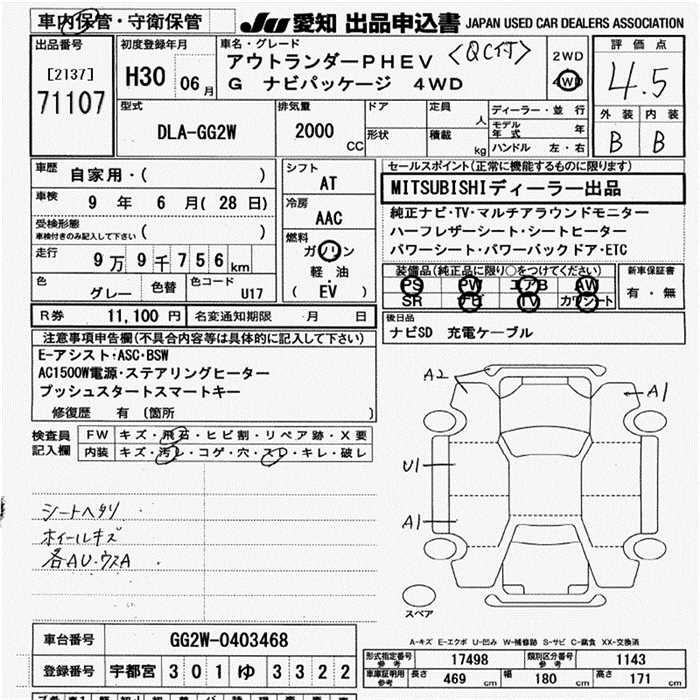 車内保管・守衛保管
JU 愛知 出品申込書 JAPAN USED CAR DEALERS ASSOCIATION
出品番号
[2137]
71107
初度登録年月
H30 06月
車名・グレード
アウトランダーPHEV <QC付>
G ナビパッケージ 4WD
2WD
4WD
評価点
4.5
外装 内装
B B
型式
DLA-GG2W
排気量
2000 CC
ドア
形状
定員 人
積載 kg
ディーラー・並行
モデル年式 年
ハンドル 左・右
車歴
自家用・( )
車検
9 年 6 月( 28 日)
受検形態
車検付きのみ記入して下さい ( )
走行
9万9千756km
色
グレー
色替
色コード
U17
シフト
AT
冷房
AAC
燃料
ガソリン
軽・油
( EV )
セールスポイント(正常に機能するものに限ります)
MITSUBISHIディーラー出品
純正ナビ・TV・マルチアラウンドモニター
ハーフレザーシート・シートヒーター
パワーシート・パワーバックドア・ETC
装備品(純正品に限り○をつけてください)
PS PW エアB AW
SR ナビ TV カワシート
新車保証書
有・無
R券 11,100 円 名変通知期限 月 日
後日品
ナビSD 充電ケーブル
注意事項申告欄(不具合内容等は具体的に記入して下さい)
E-アシスト・ASC・BSW
AC1500W電源・ステアリングヒーター
プッシュスタートスマートキー
修復歴 有 (箇所 )
検査員記入欄
FW キズ・飛石・ヒビ割・リペア跡・X要
内装 キズ・汚レ・コゲ・穴・スレ・キレ・破レ
シートヘタリ
ホイールキズ
各AU・ウスA
A2
A1
U1
A1
スペア
A-キズ E-エクボ U-凹み W-補修跡 S-サビ C-腐食 XX-交換済
車台番号 GG2W-0403468
登録番号 宇都宮 301 ゆ 3322
形式指定番号 参考 17498 類別区分番号 参考 1143
車庫証明用 参考 長さ 469 cm 幅 180 cm 高さ 171 cm